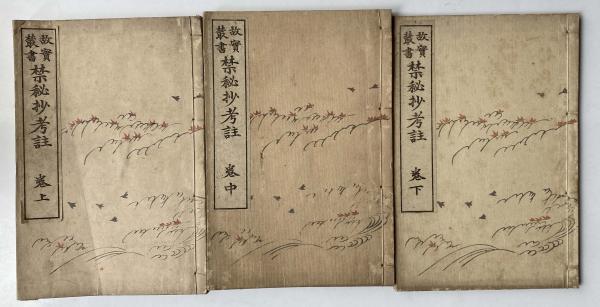 故實
叢書
禁秘抄考註
卷上
故實
叢書
禁秘抄考註
卷中
故實
叢書
禁秘抄考註
卷下